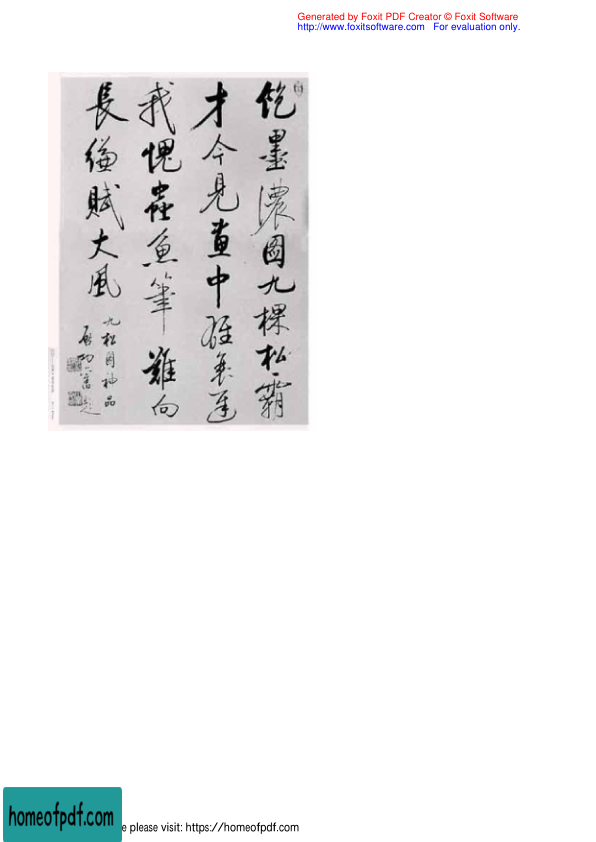 Generated by Foxit PDF Creator © Foxit Software
http://www.foxitsoftware.com For evaluation only.
飽墨濃圖九棵松霸
才今見畫中雄衰遲
我愧蟲魚筆難向
長縑賦大風
九松圖神品
啟功舊題
homeofpdf.com
e please visit: https://homeofpdf.com